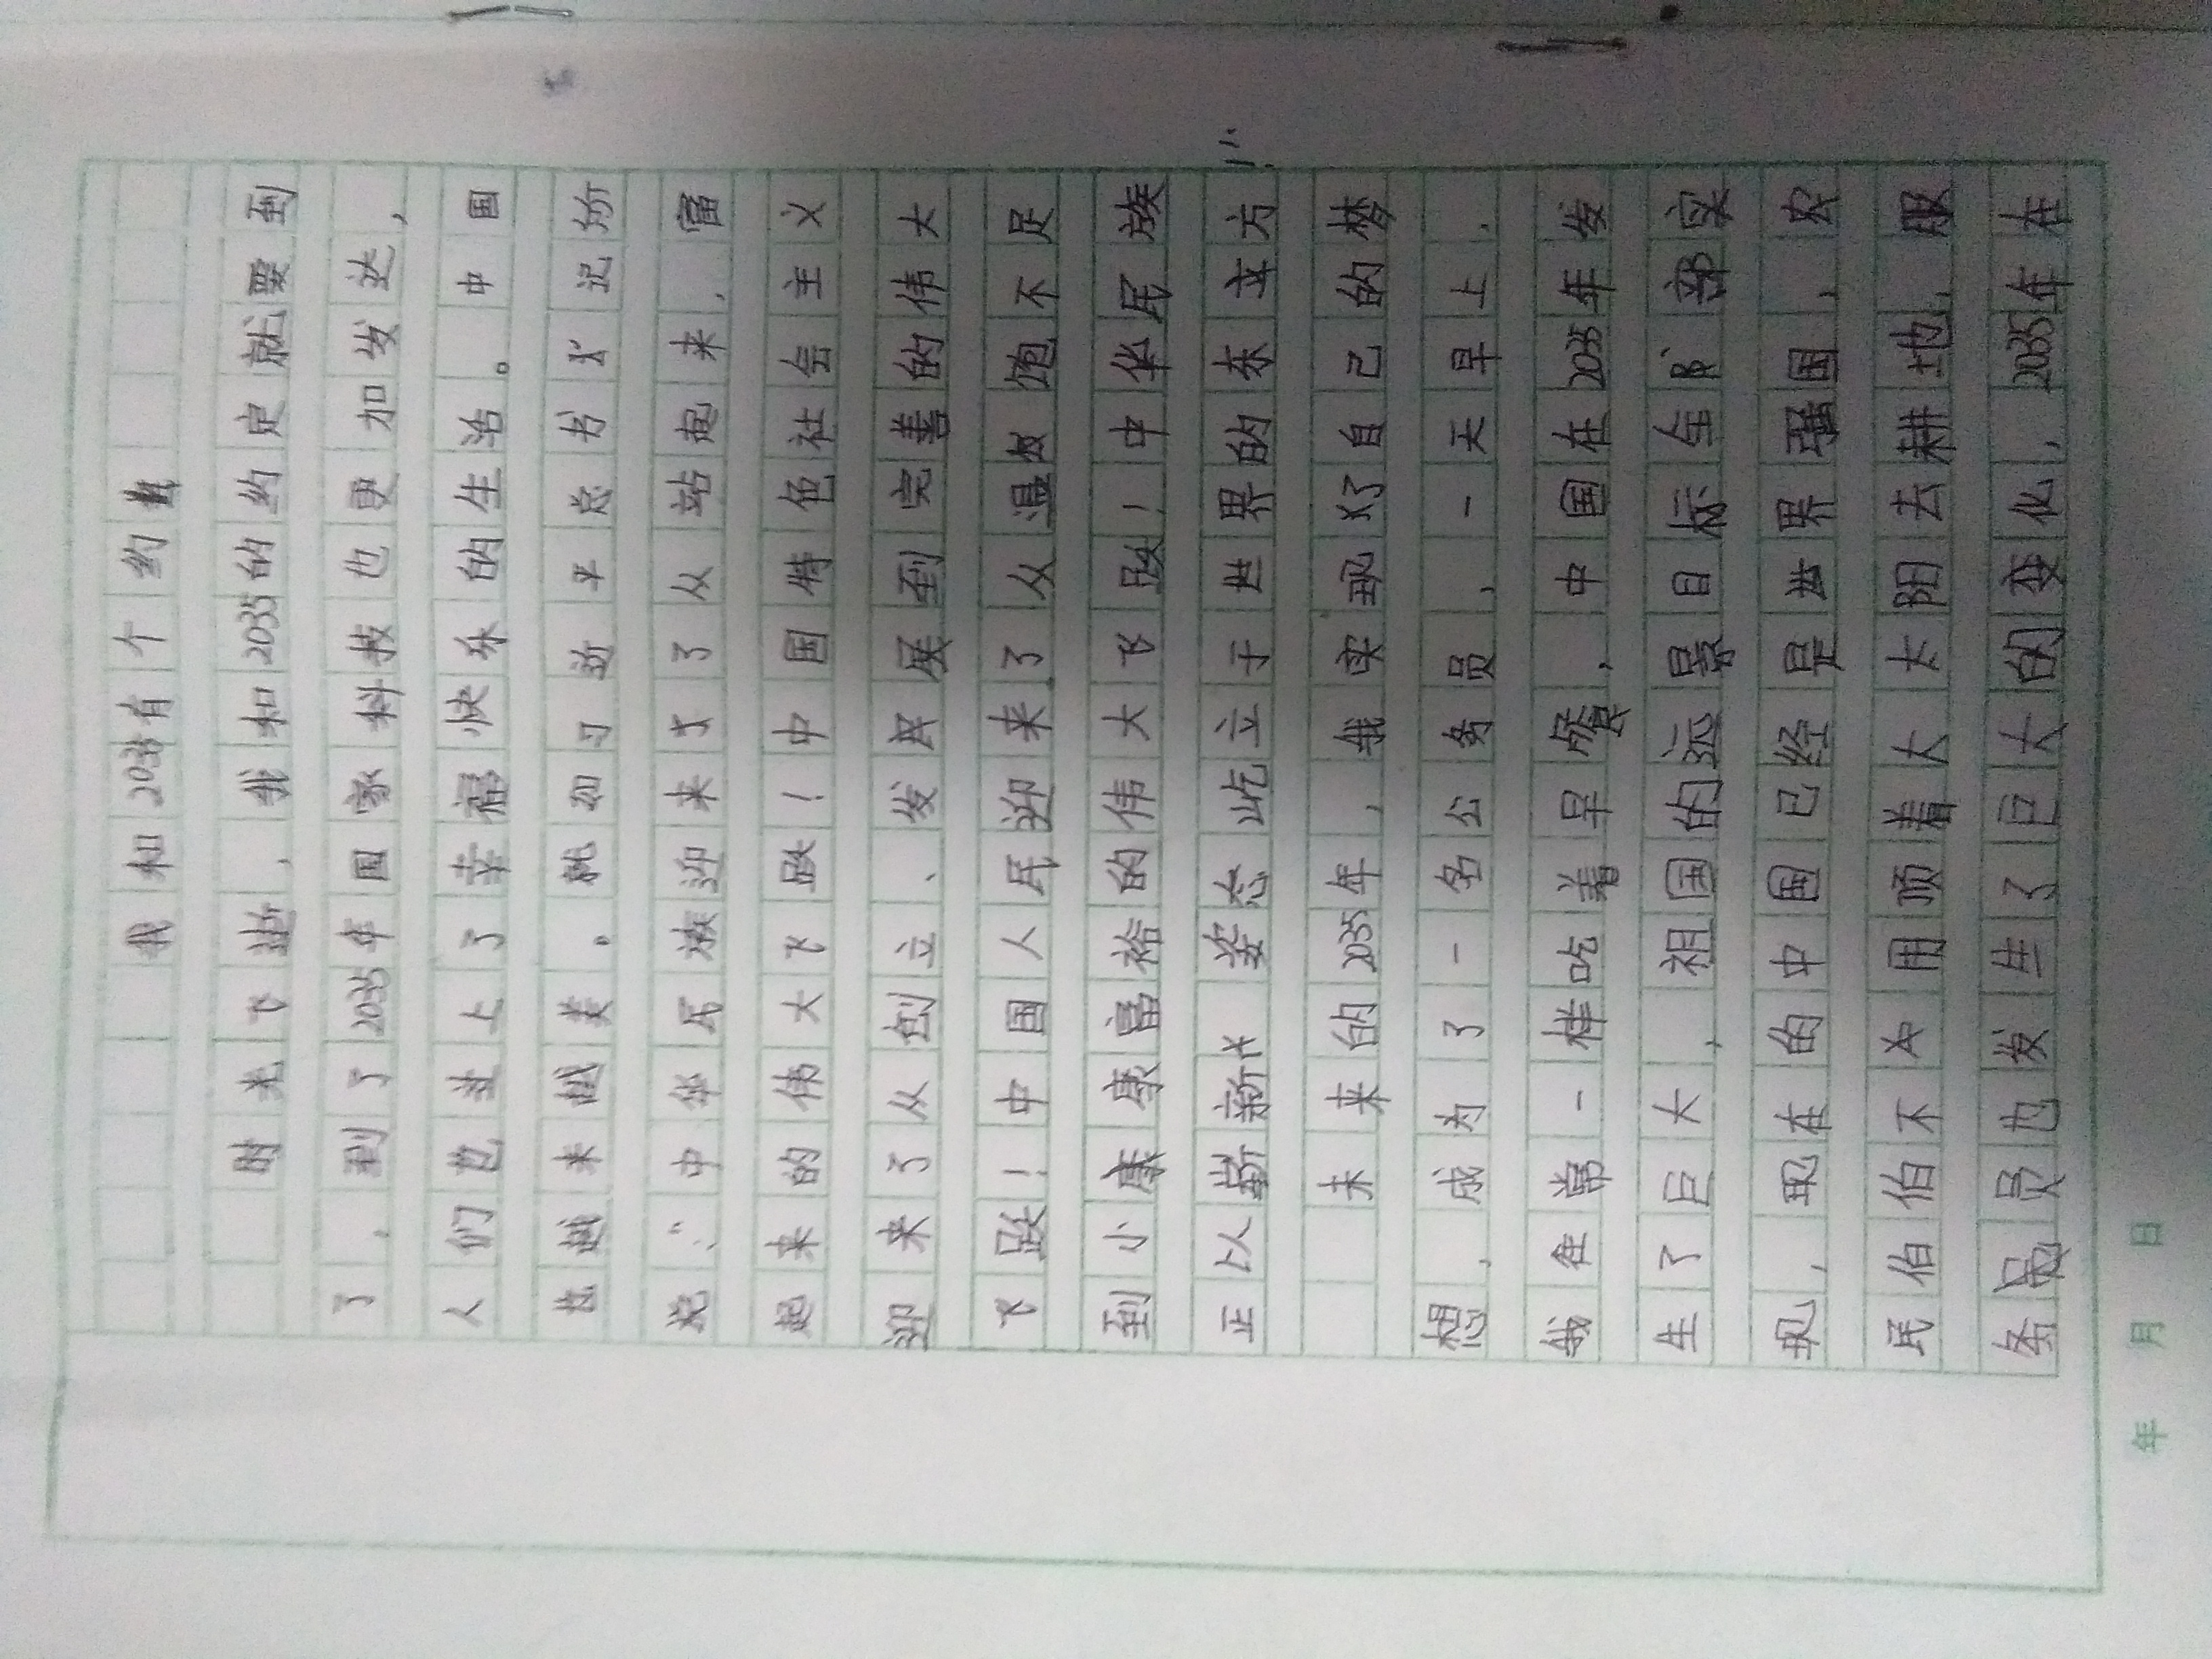 我和2035有个约
时光飞逝，我和2035的约定就要到
了，到了2035年国家科技也更加发达，
人们也过上了幸福快乐的生活。中国
也越来越美。就如习近平总书记所
说：“中华民族迎来了从站起来、富
起来的伟大飞跃！中国特色社会主义
迎来了从创立、发展到完善的伟大
飞跃！中国人民迎来了从温饱不足
到小康富裕的伟大飞跃！中华民族
正以崭新姿态屹立于世界的东方！”
未来的2035年，我实现了自己的梦
想，成为了一名公务员，一天早上，
我在常一样吃着早餐，中国在2035年发
生了巨大，祖国的远景目标全部实
现，现在的中国已经是世界强国，农
民伯伯不用顶着大太阳去耕地，服
务员也发生了巨大的变化，2035年在
年 月 日